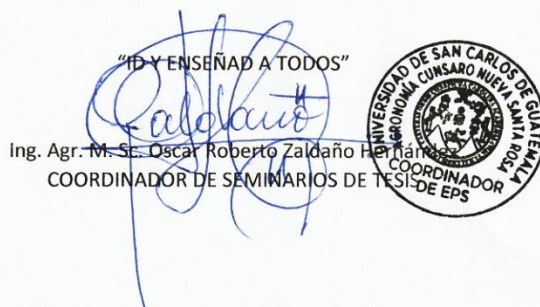 “ID Y ENSEÑAD A TODOS”
Ing. Agr. M. Sc. Oscar Roberto Zaldaño Hernández
COORDINADOR DE SEMINARIOS DE TESIS
UNIVERSIDAD DE SAN CARLOS DE GUATEMALA
AGRONOMÍA CUNSARO NUEVA SANTA ROSA
COORDINADOR
DE EPS